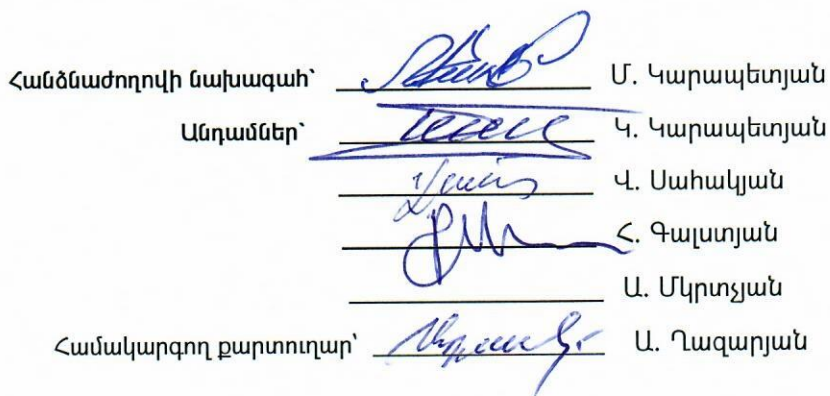 Հանձնաժողովի նախագահ՝ Մ. Կարապետյան
Անդամներ՝ Կ. Կարապետյան
Վ. Սահակյան
Հ. Գալստյան
Ա. Մկրտչյան
Համակարգող քարտուղար՝ Ա. Ղազարյան